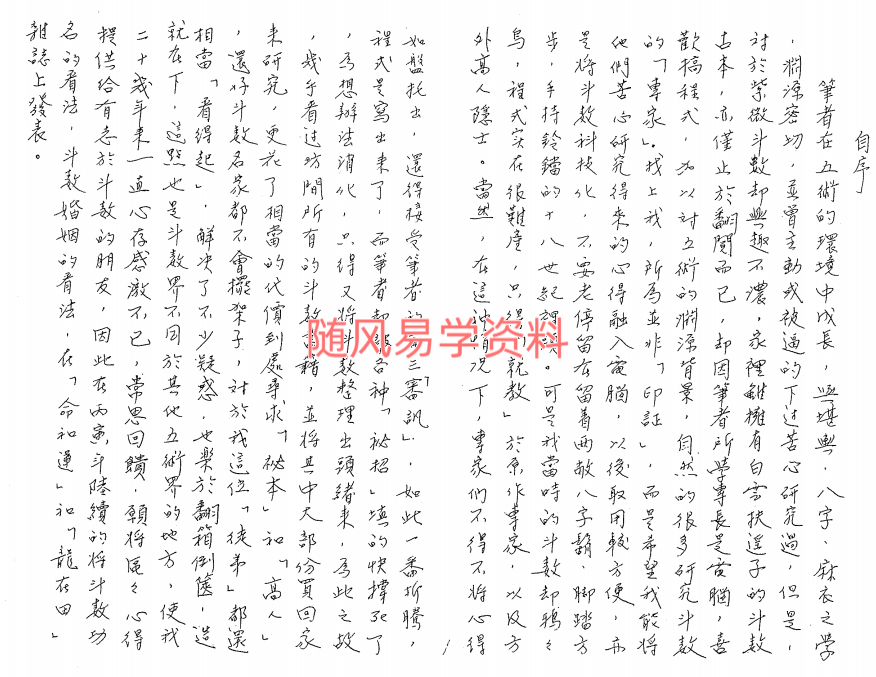 自序
筆者在五術的環境中成長，與堪輿，八字，麻衣之學
，淵源密切，並曾主動或被逼的下过苦心研究過，但是，
对於紫微斗數却興趣不濃，家裡雖擁有白雲扶遥子的斗數
古本，亦僅止於翻閱而已，却因筆者所学專長是電腦，喜
歡搞程式，加以対五術的淵源背景，自然的很多研究斗數
的「專家」，找上我，所為並非「印証」，而是希望我能將
他們苦心研究得來的心得融入電腦，以後取用較方便，亦
是将斗数科技化，不要老停留在留着两撇八字鬍，脚踏方
步，手持鈴鐺的十八世紀裡頭。可是我當時的斗數却鴉々
烏，程式实在很難產，只得「就教」於原作專家，以及方
外高人隱士。當然，在這种情況下，專家們不得不將心得
如盤托出，還得接受筆者的再三「審訊」，如此一番折騰，
程式是寫出來了，而筆者却被各种「祕招」填的快撑死了
，為想辦法消化，只得又将斗數整理出頭緒來，為此之故
，幾乎看过坊間所有的斗数書籍，並将其中大部份買回家
来研究，更花了相當的代價到處尋求「祕本」和「高人」
，還好斗数名家都不會擺架子，対於我這位「徒弟」都還
相當「看得起」，解決了不少疑惑，也樂於翻箱倒篋，造
就在下，這點也是斗數界不同於其他五術界的地方，使我
二十幾年來一直心存感激不已，常思回饋，願将區々心得
提供给有志於斗数的朋友，因此在丙寅年陸續的将斗数功
名的看法，斗数婚姻的看法，在「命和運」和「龍在田」
雜誌上發表。
随风易学资料